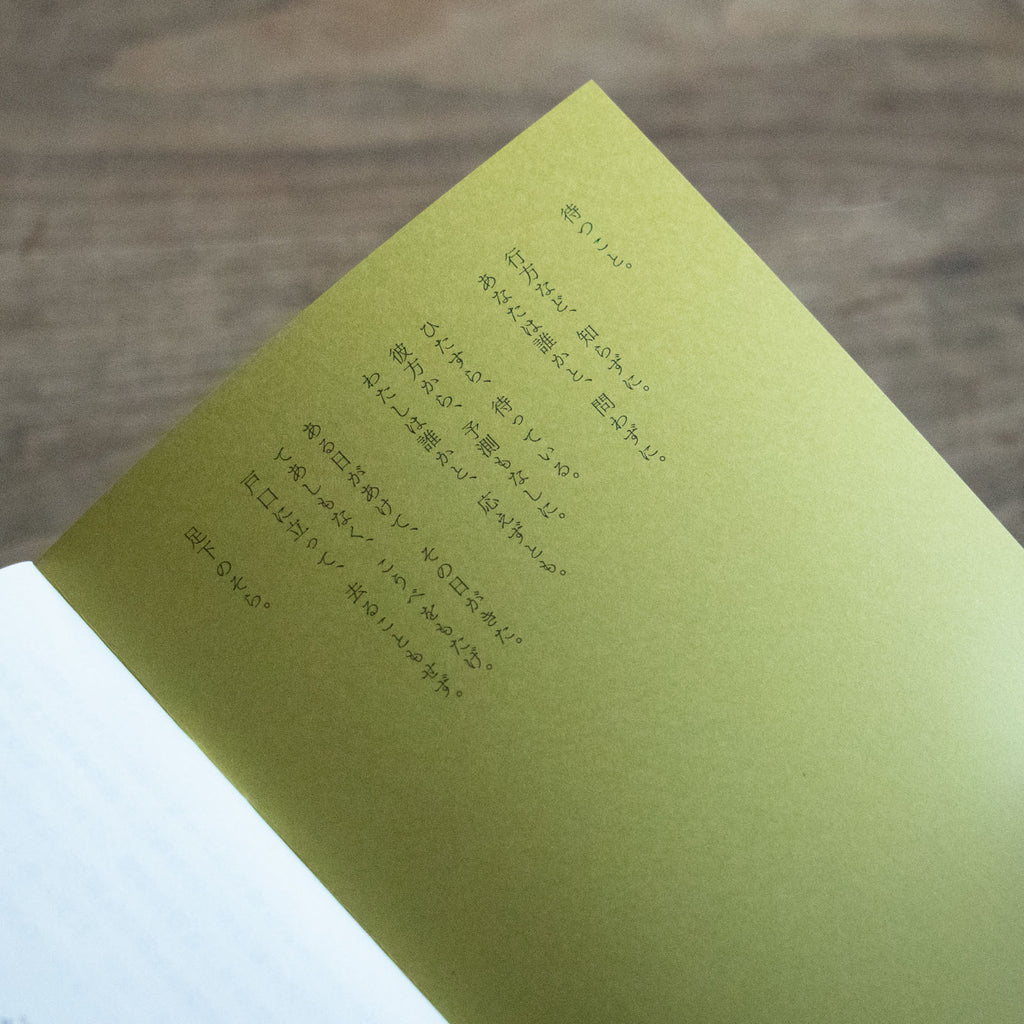 待つこと。
行方など、知らずに。
あなたは誰かと、問わずに。
ひたすら、待っている。
彼方から、予測もなしに。
わたしは誰かと、応えずとも。
ある日があけて、その日がきた。
てあしもなく、こうべをもたげ。
戸口に立って、去ることもせず。
足下のそら。